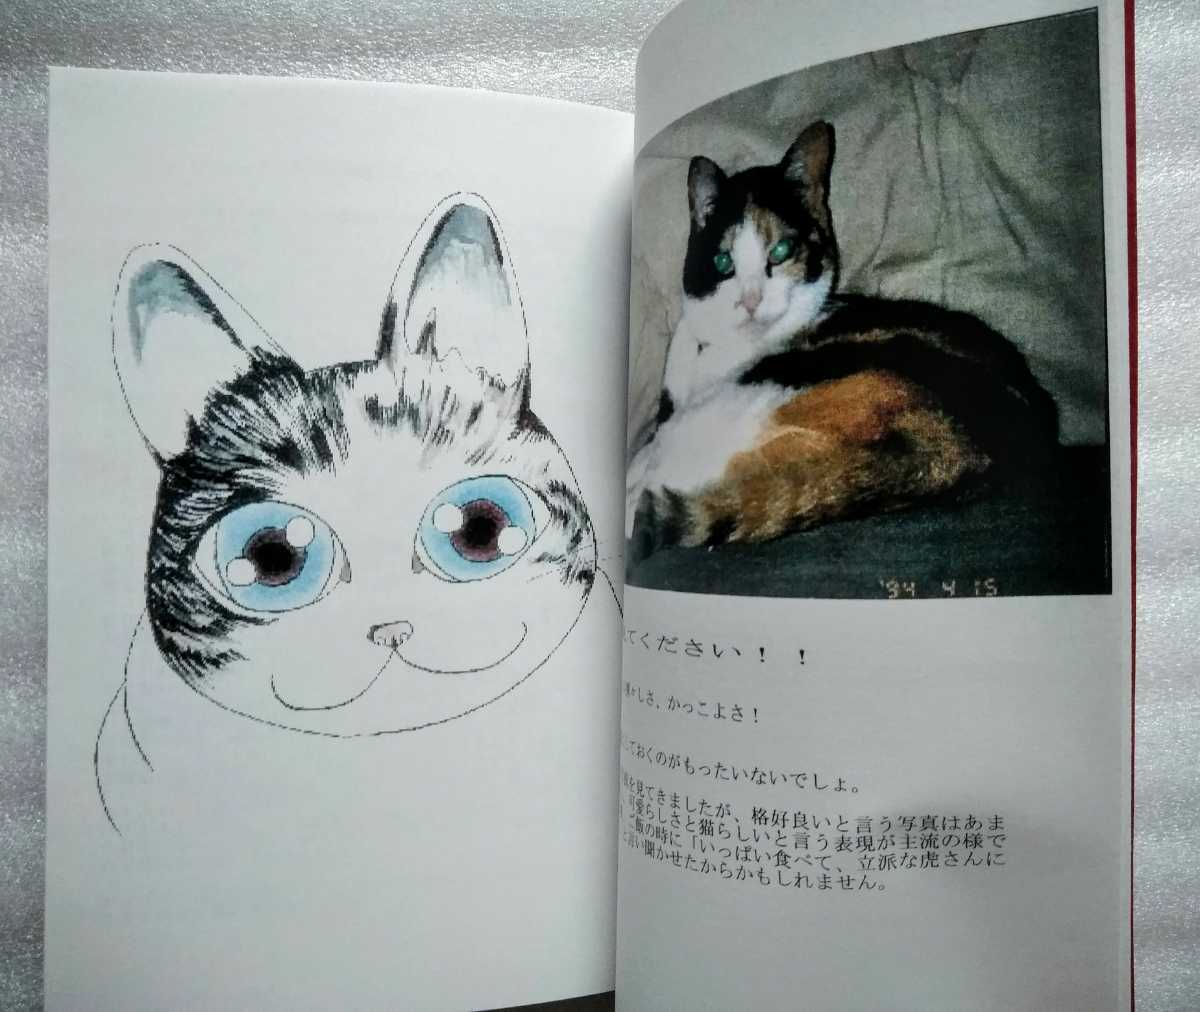 '94 4 15
てください！！
しさ、かっこよさ！
ておくのがもったいないでしょ。
を見てきましたが、格好良いと言う写真はあま
可愛らしさと猫らしいと言う表現が主流の様で
ご飯の時に「いっぱい食べて、立派な虎さんに
と言い聞かせたからかもしれません。